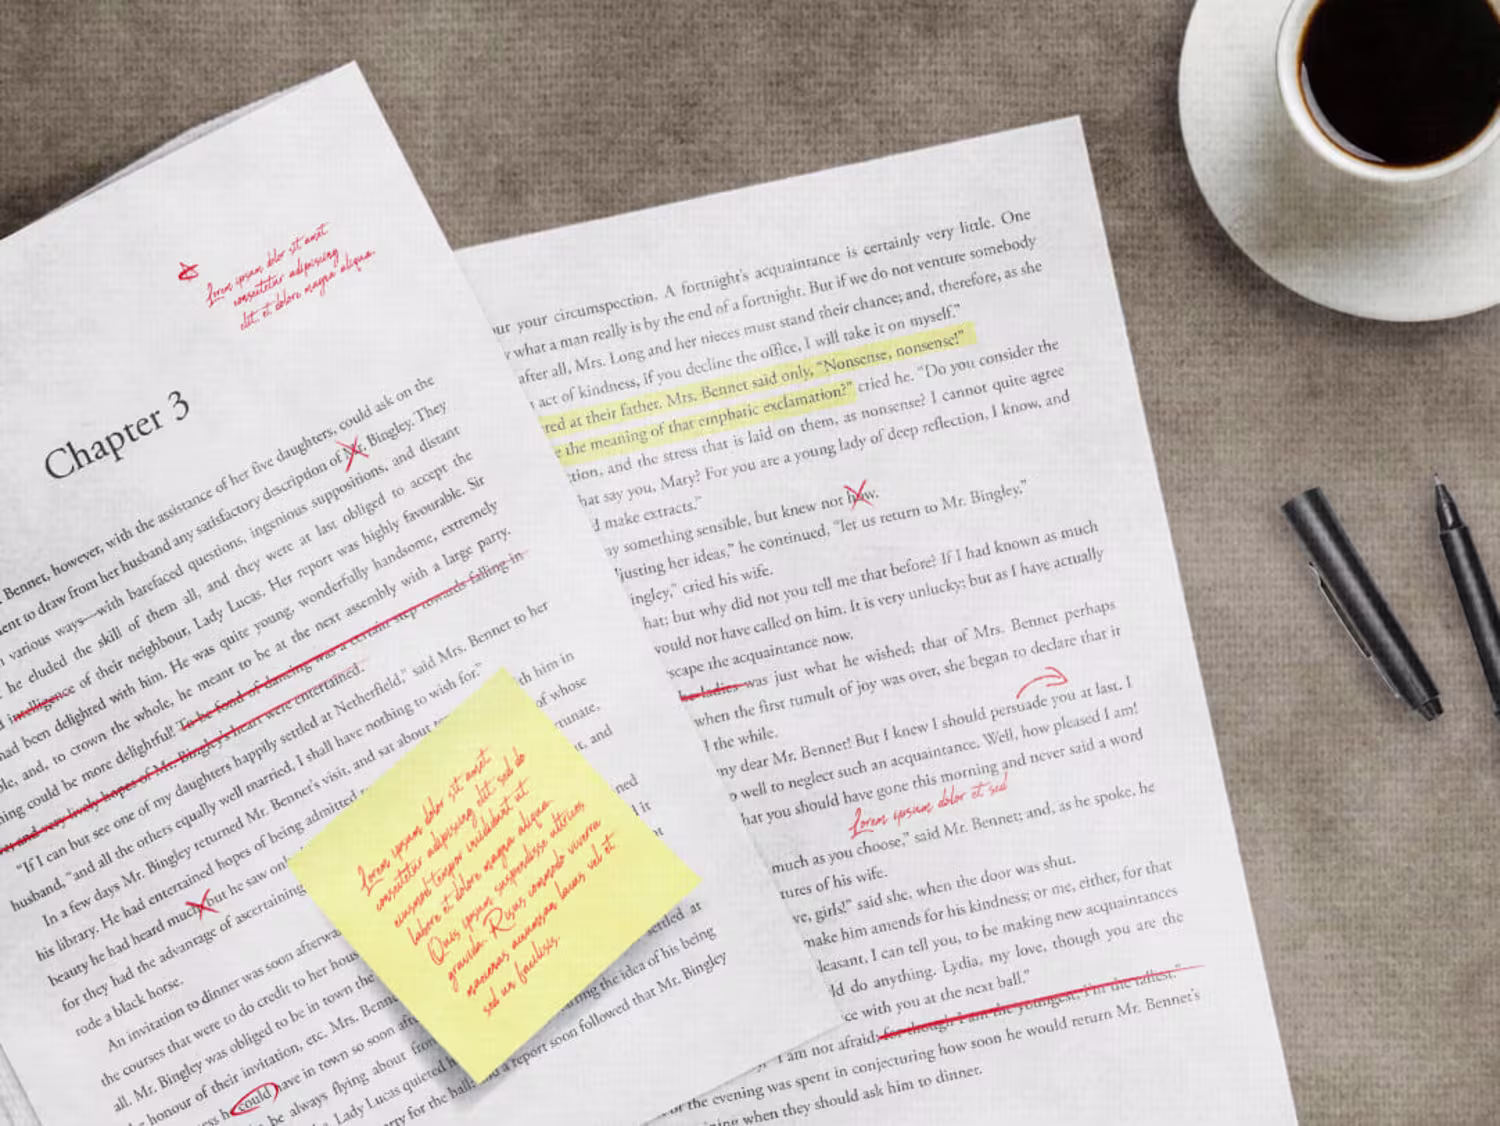 Lorem ipsum dolor sit amet
consectetur adipiscing
elit, et dolore magna aliqua.
Chapter 3
Bennet, however, with the assistance of her five daughters, could ask on the
to draw from her husband any satisfactory description of Mr. Bingley. They
various ways—with barefaced questions, ingenious suppositions, and distant
he eluded the skill of them all, and they were at last obliged to accept the
intelligence of their neighbour, Lady Lucas. Her report was highly favourable. Sir
had been delighted with him. He was quite young, wonderfully handsome, extremely
and, to crown the whole, he meant to be at the next assembly with a large party.
could be more delightful! To be fond of dancing was a certain step towards falling in
and very lively hopes of Mr. Bingley's heart were entertained.
"If I can but see one of my daughters happily settled at Netherfield," said Mrs. Bennet to her
husband, "and all the others equally well married, I shall have nothing to wish for."
In a few days Mr. Bingley returned Mr. Bennet's visit, and sat about
him in
his library. He had entertained hopes of being admitted
of whose
beauty he had heard much; but he saw
for they had the advantage of ascertaining
and
rode a black horse.
An invitation to dinner was soon
the courses that were to do credit to her
it
all. Mr. Bingley was obliged to be in town the
honour of their invitation, etc. Mrs.
have in town so soon
could
be always flying about from
at
Lady Lucas quieted
the idea of his being
for the ball;
a report soon followed that Mr. Bingley
Lorem ipsum dolor sit amet
consectetur adipiscing elit, sed do
eiusmod tempor incididunt ut
labore et dolore magna aliqua.
Quis ipsum suspendisse ultrices
gravida. Risus commodo viverra
maecenas accumsan lacus vel et
sed un facilisis.
your circumspection. A fortnight's acquaintance is certainly very little. One
what a man really is by the end of a fortnight. But if we do not venture somebody
after all, Mrs. Long and her nieces must stand their chance; and, therefore, as she
act of kindness, if you decline the office, I will take it on myself."
at their father. Mrs. Bennet said only, "Nonsense, nonsense!"
the meaning of that emphatic exclamation?" cried he. "Do you consider the
and the stress that is laid on them, as nonsense? I cannot quite agree
say you, Mary? For you are a young lady of deep reflection, I know, and
make extracts."
something sensible, but knew not how.
her ideas," he continued, "let us return to Mr. Bingley."
cried his wife.
but why did not you tell me that before? If I had known as much
not have called on him. It is very unlucky; but as I have actually
the acquaintance now.
ladies was just what he wished; that of Mrs. Bennet perhaps
when the first tumult of joy was over, she began to declare that it
the while.
my dear Mr. Bennet! But I knew I should persuade you at last. I
well to neglect such an acquaintance. Well, how pleased I am!
that you should have gone this morning and never said a word
Lorem ipsum dolor et sed
much as you choose," said Mr. Bennet; and, as he spoke, he
of his wife.
girls!" said she, when the door was shut.
make him amends for his kindness; or me, either, for that
I can tell you, to be making new acquaintances
do anything. Lydia, my love, though you are the
with you at the next ball."
I am not afraid; for though I am the youngest, I'm the tallest."
the evening was spent in conjecturing how soon he would return Mr. Bennet's
when they should ask him to dinner.